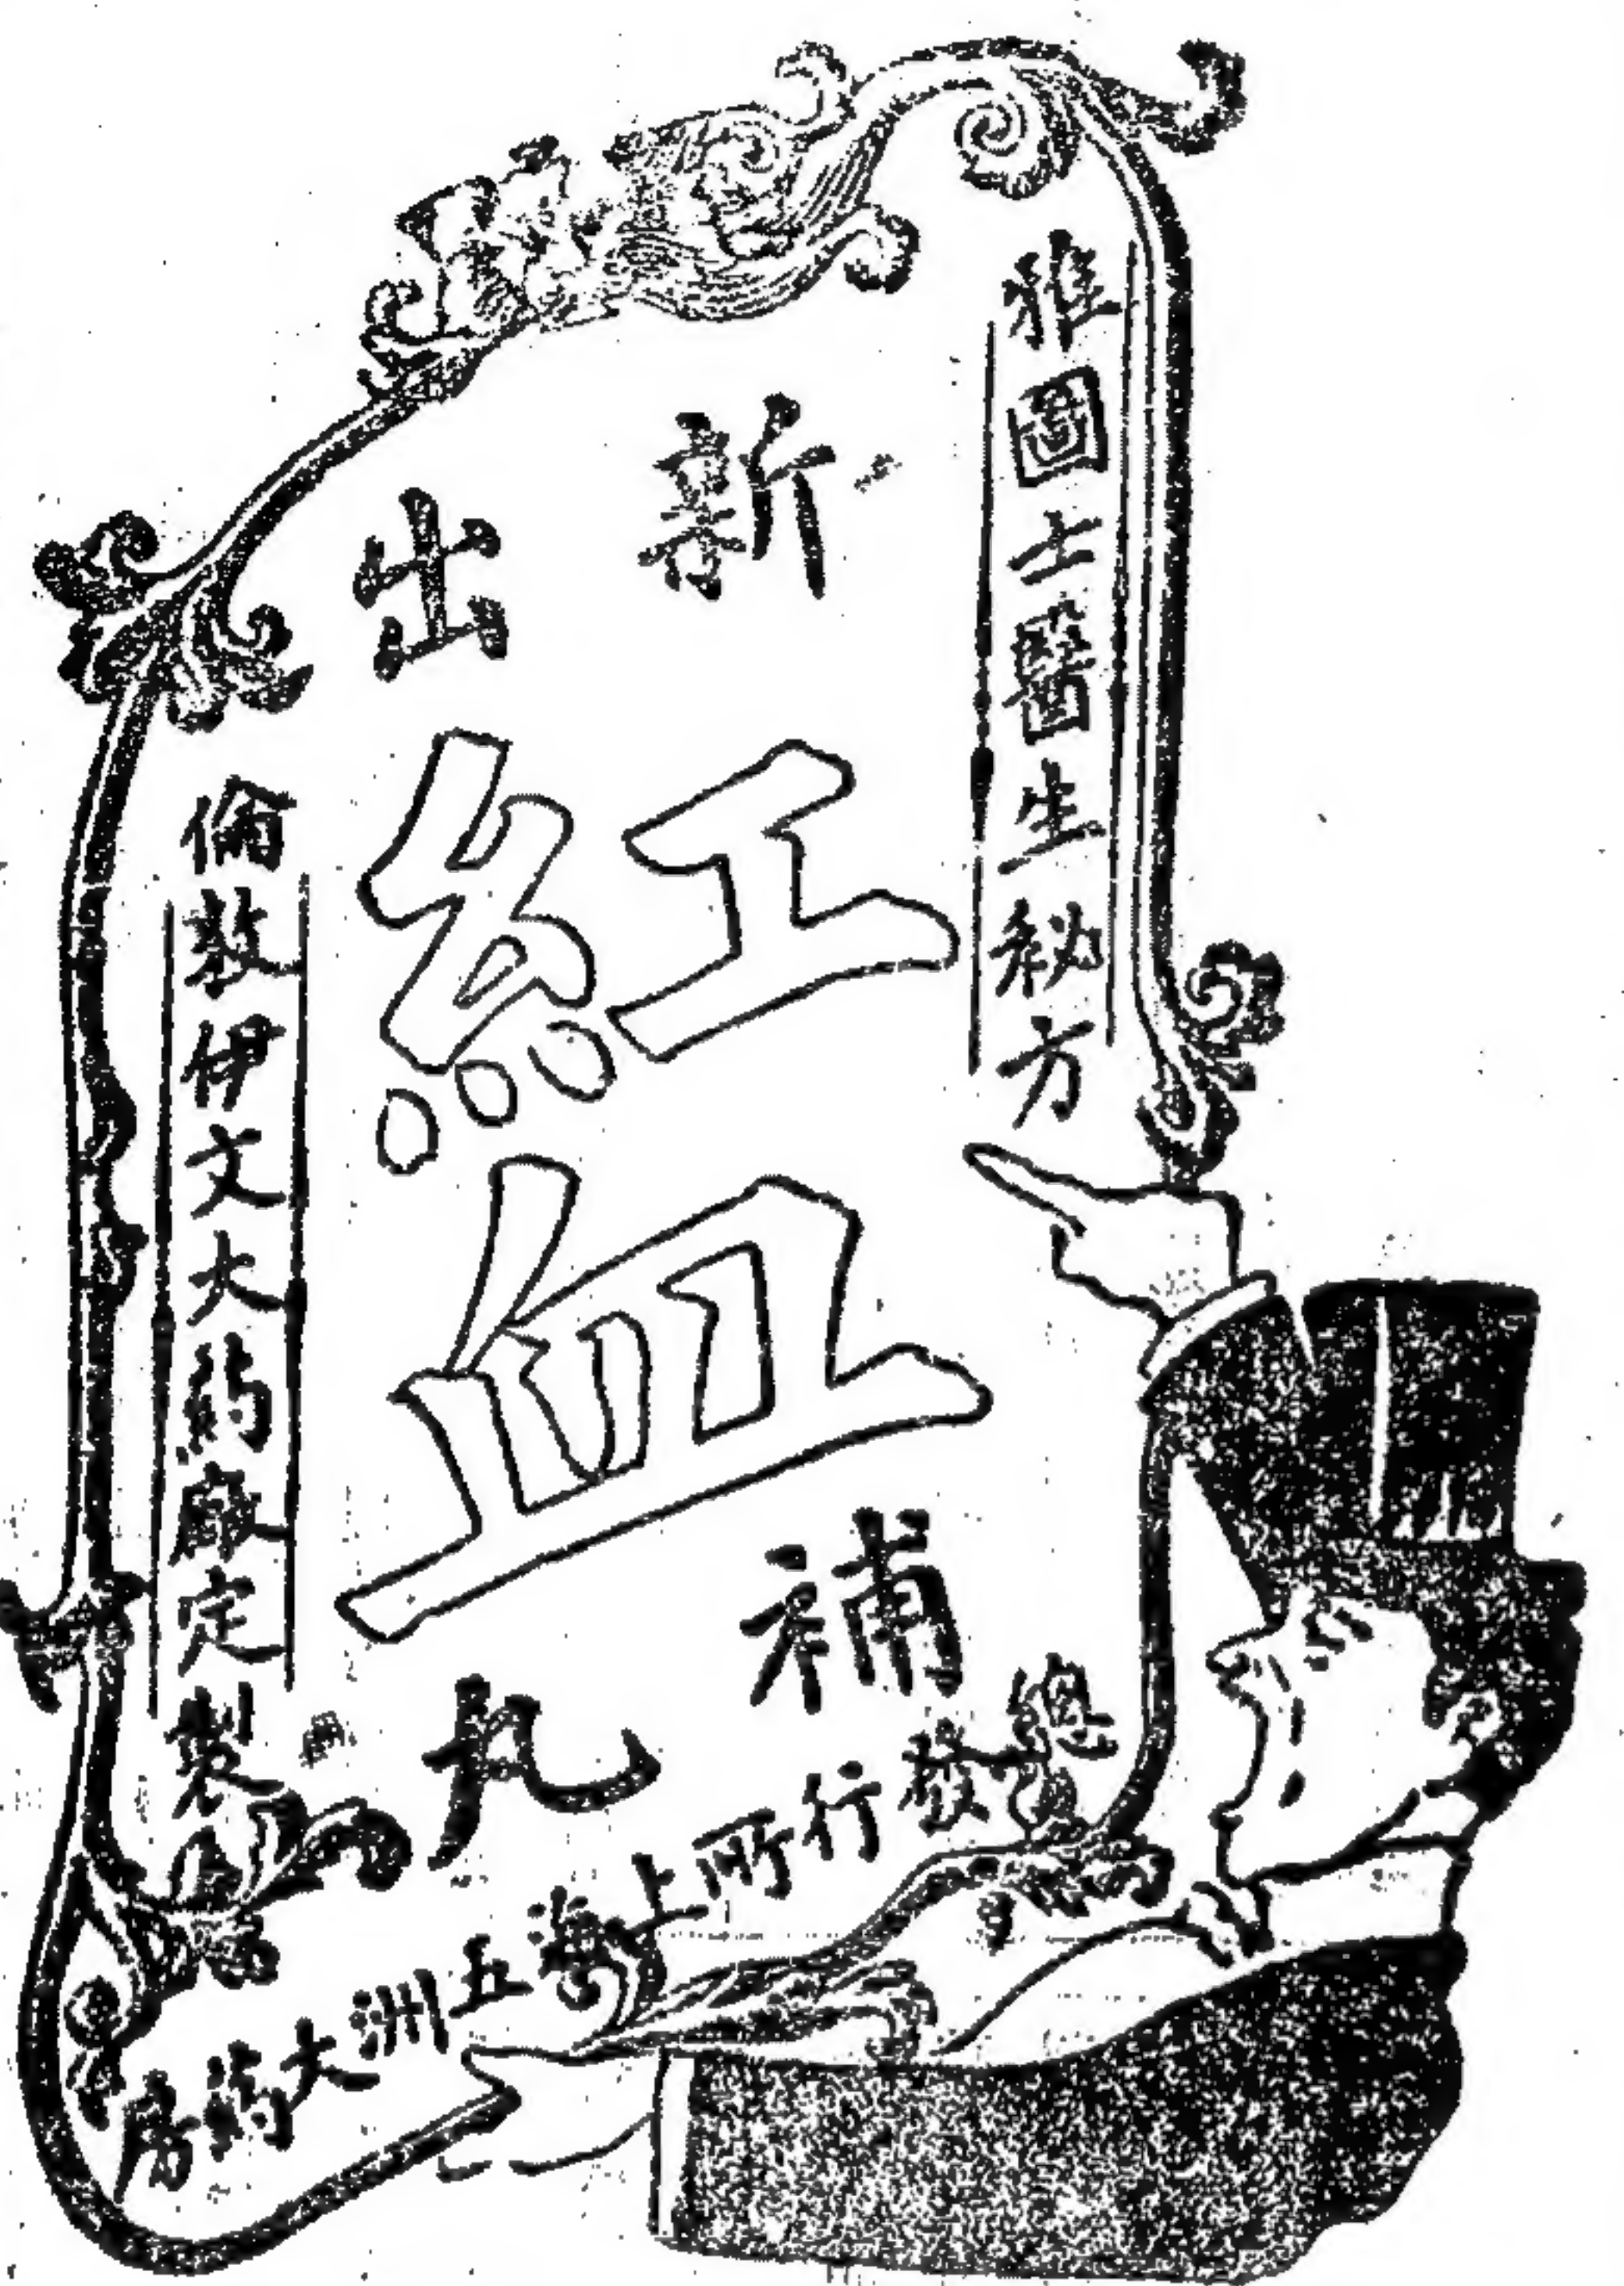 雅圖士醫生秘方
新出
紅血
補丸
倫敦伊文大药廠定製
總發行所上海五洲大药房